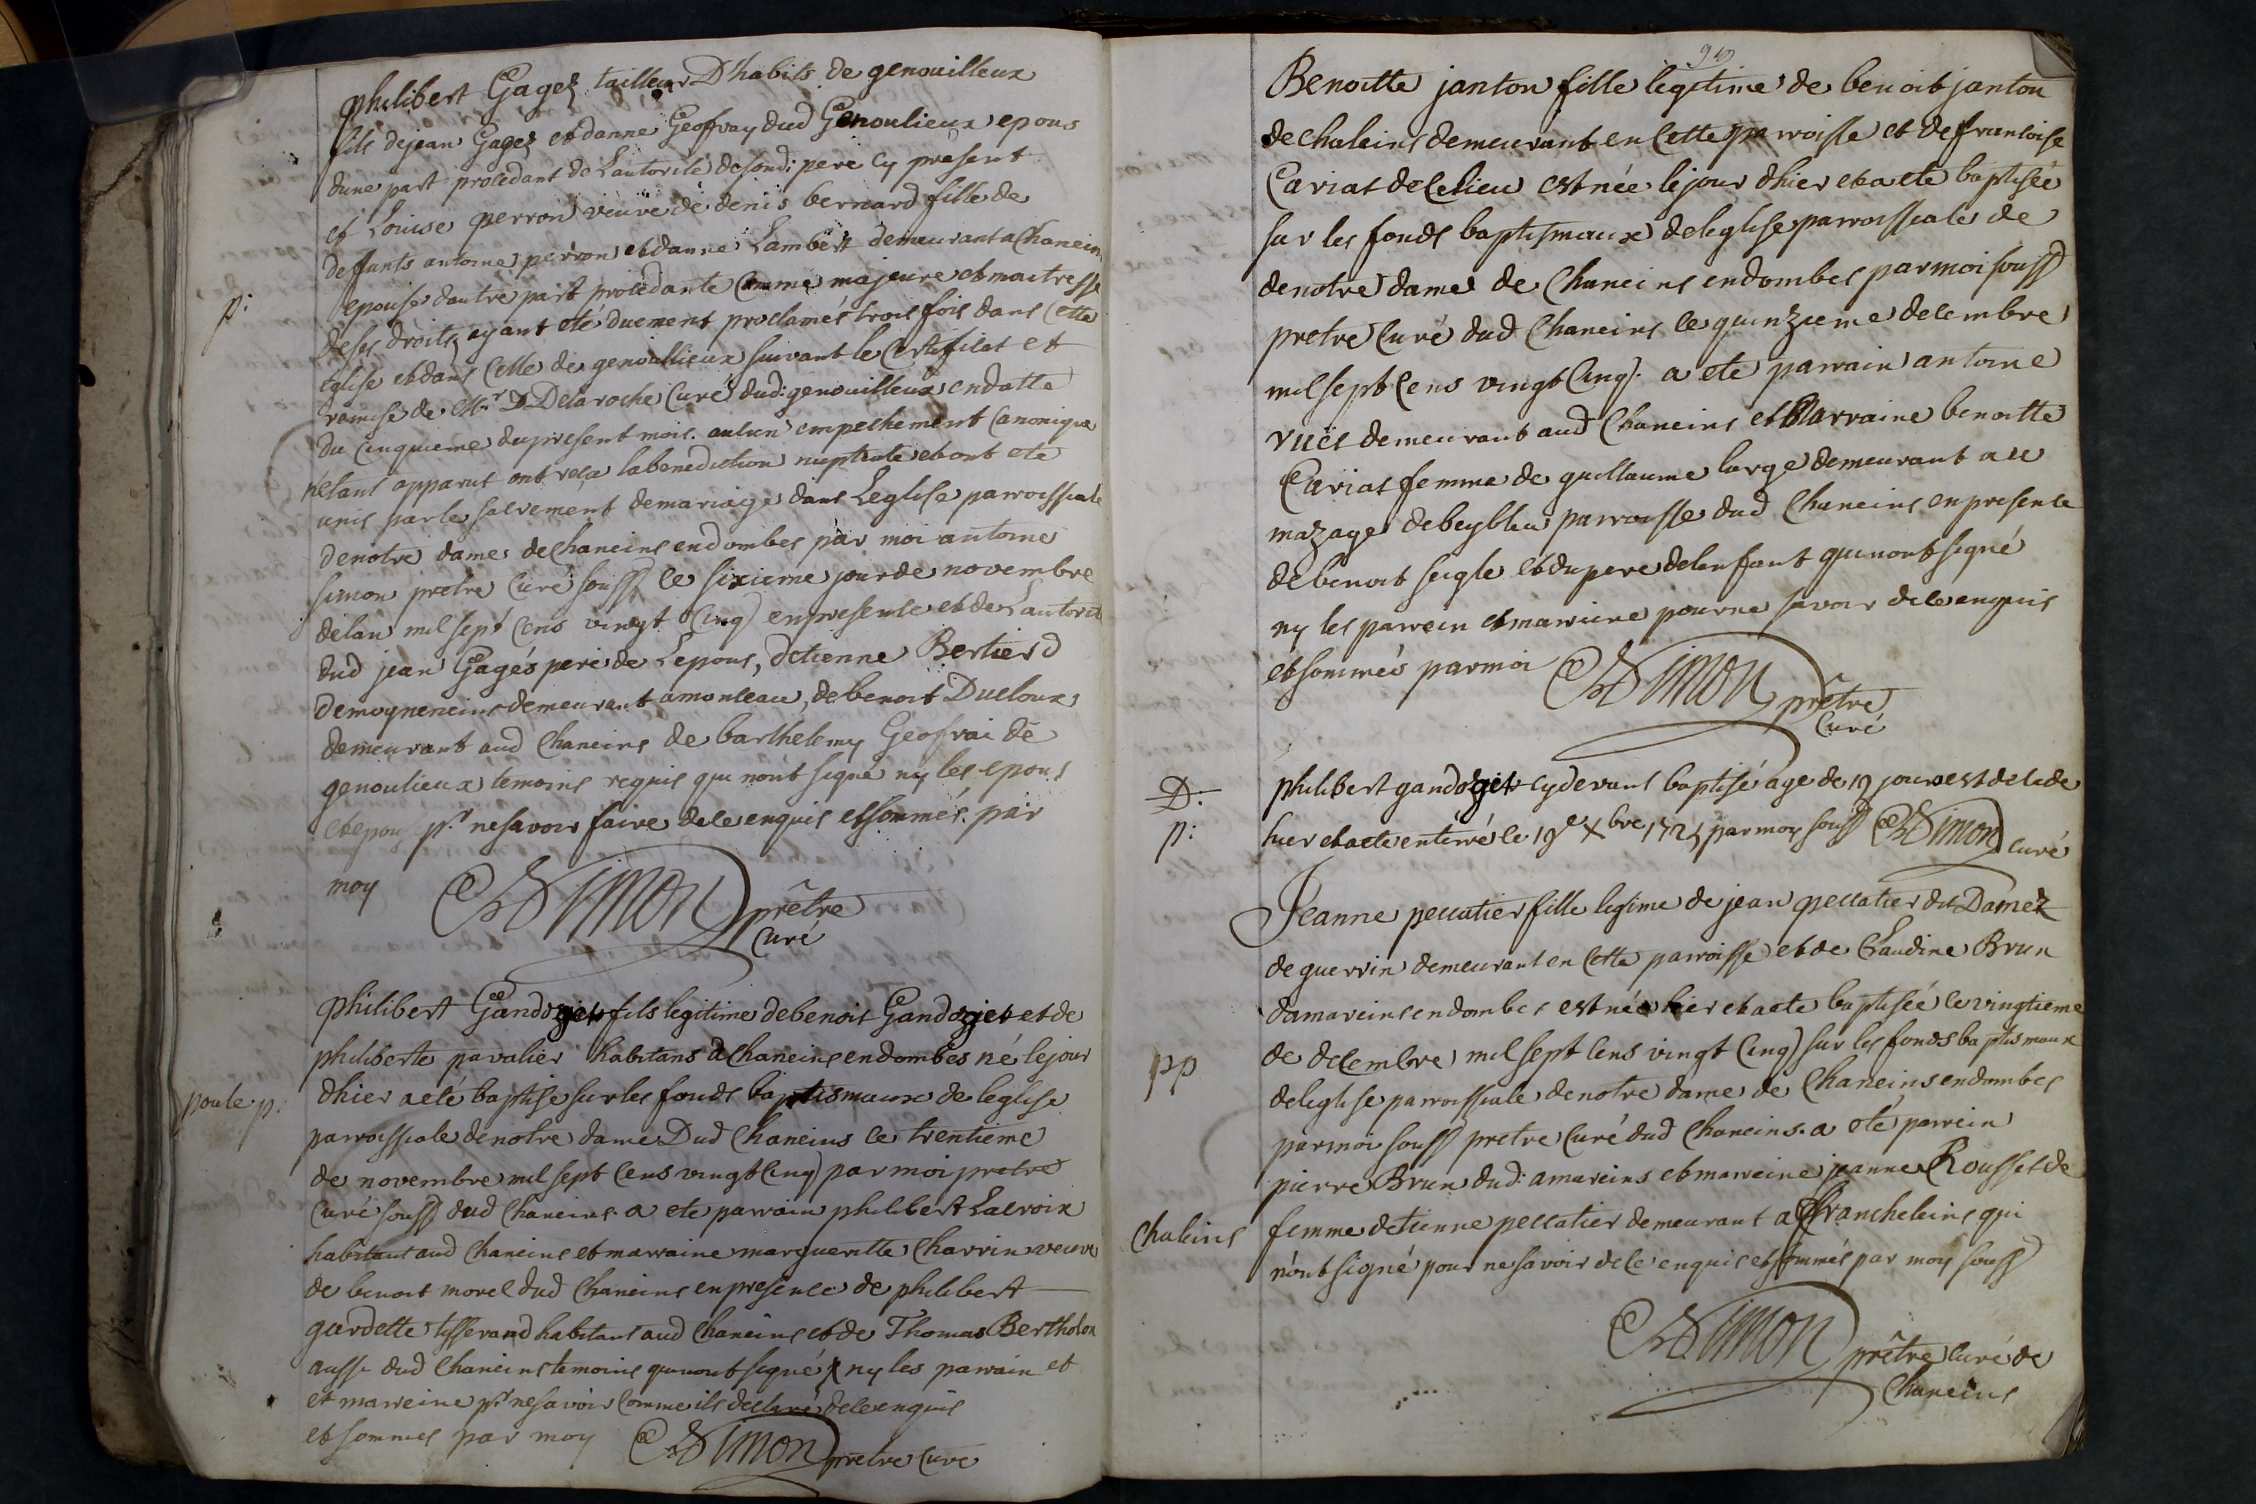 philibert Gagez tailleur D'habits de genouilleux
fils de jean Gagez et danne Geofray dud Genoulieux epous
dune part procedant de Lautorité de sondi pere cy present
et Louise perron veuve de denis bernard fille de
deffunts antoine perron et danne Lambert demeurant a Chanein
epouse dautre part procedante comme majeure et maitresse
p:
de ses droits, ayant eté duement proclamés trois fois dans cette
eglise et dans celle de genoullieux suivant le certificat et
remise de Mr. D. Delaroche Curé dud: genouilleux en datte
du cinquieme du present mois. aucun empeschement Canonique
n'étant apparut ont reça la benediction nuptiale et ont eté
unis par le sacrement de mariage dans Leglise parroissiale
de notre dame de chaneins en dombes par moi antoine
simon pretre Curé souss ce sixieme jour de novembre
de lan mil sept cens vingt Cinq en presence et de Lautorité
dud jean Gagés pere de Lepous, detienne Bertierd
de mogneneins demeurant a monceau, de benoit Ducloux
demeurant aud Chaneins de barthelemy Geofrai de
genoulieux temoins requis qui n'ont signé ny les epous
et epouse pr. ne savoir faire de ce enquis et sommés. par
moy A Simon prêtre
Curé
philibert Gandoget fils legitime de benoit Gandoget et de
philiberte pavalier habitans a Chaneins en dombes né le jour
poule p:
dhier a eté baptise sur les fonds baptismaux de leglise
parroissiale de notre dame Dud Chaneins ce trentieme
de novembre mil sept cens vingt cinq par moi pretre
Curé souss dud Chaneins. a ete parrain philibert Lacroix
habitant aud Chaneins et marraine margueritte Charrin veuve
de benoit morel dud Chaneins en presence de philibert
gardette tisserand habitant aud Chaneins et de Thomas Bertholon
aussi dud Chaneins temoins qui n'ont signé ny les parrain et
et marreine pr. ne savoir comme ils declaré de ce enquis
et sommes par moy A Simon pretre Cure
Benoitte janton fille legitime de benoit janton
de chaleins demeurant en cette parroisse et de francoise
Cariat de ce lieu est née le jour dhier et a ete baptisée
sur les fonds baptismaux de leglise parroissiale de
de notre dame de Chaneins en dombes par moi souss
pretre Curé dud Chaneins ce quinzieme decembre
mil sept cens vingt Cinq. a ete parrain antoine
ruet demeurant aud Chaneins et Marraine benoitte
Cariat femme de guillaume large demeurant au
mazage de beybleu parroisse dud Chaneins en presence
de benoit seigle et du pere de lenfant qui n'ont signé
ny les parrein et marreine pour ne savoir de ce enquis
et sommés par moi A Simon prêtre
Curé
D:
philibert gandoget cy devant baptisé age de 19 jours est decede
p:
hier et a ete enterré le 19e Xbre 1725 par moy souss A Simon curé
Jeanne pellatier fille legime de jean pellatier dit Damez
de guerrin demeurant en cette parroisse et de Claudine Brun
damareins en dombes est née hier et a ete baptisée ce vingtieme
pp
de decembre mil sept cens vingt Cinq sur les fonds baptismaux
de leglise parroissiale de notre dame de Chaneins en dombes
par moi souss pretre Curé dud Chaneins. a eté parrein
pierre Brun dud: amareins et marreine jeanne Rousset de
Chaleins
femme detienne pellatier demeurant a francheleins qui
n'ont signé pour ne savoir de ce enquis et sommés par moy souss
A Simon prêtre curé de
Chaneins